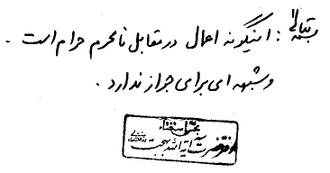 بسمه تعالی : اینگونه اعمال در مقابل نامحرم حرام است .
و شبهه ای برای جواز ندارد .
بخش استفتاء
دفتر حضرت آیة الله بهجت